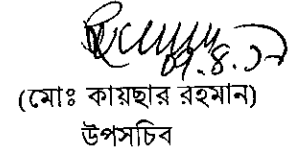 (মোঃ কায়ছার রহমান)
উপসচিব